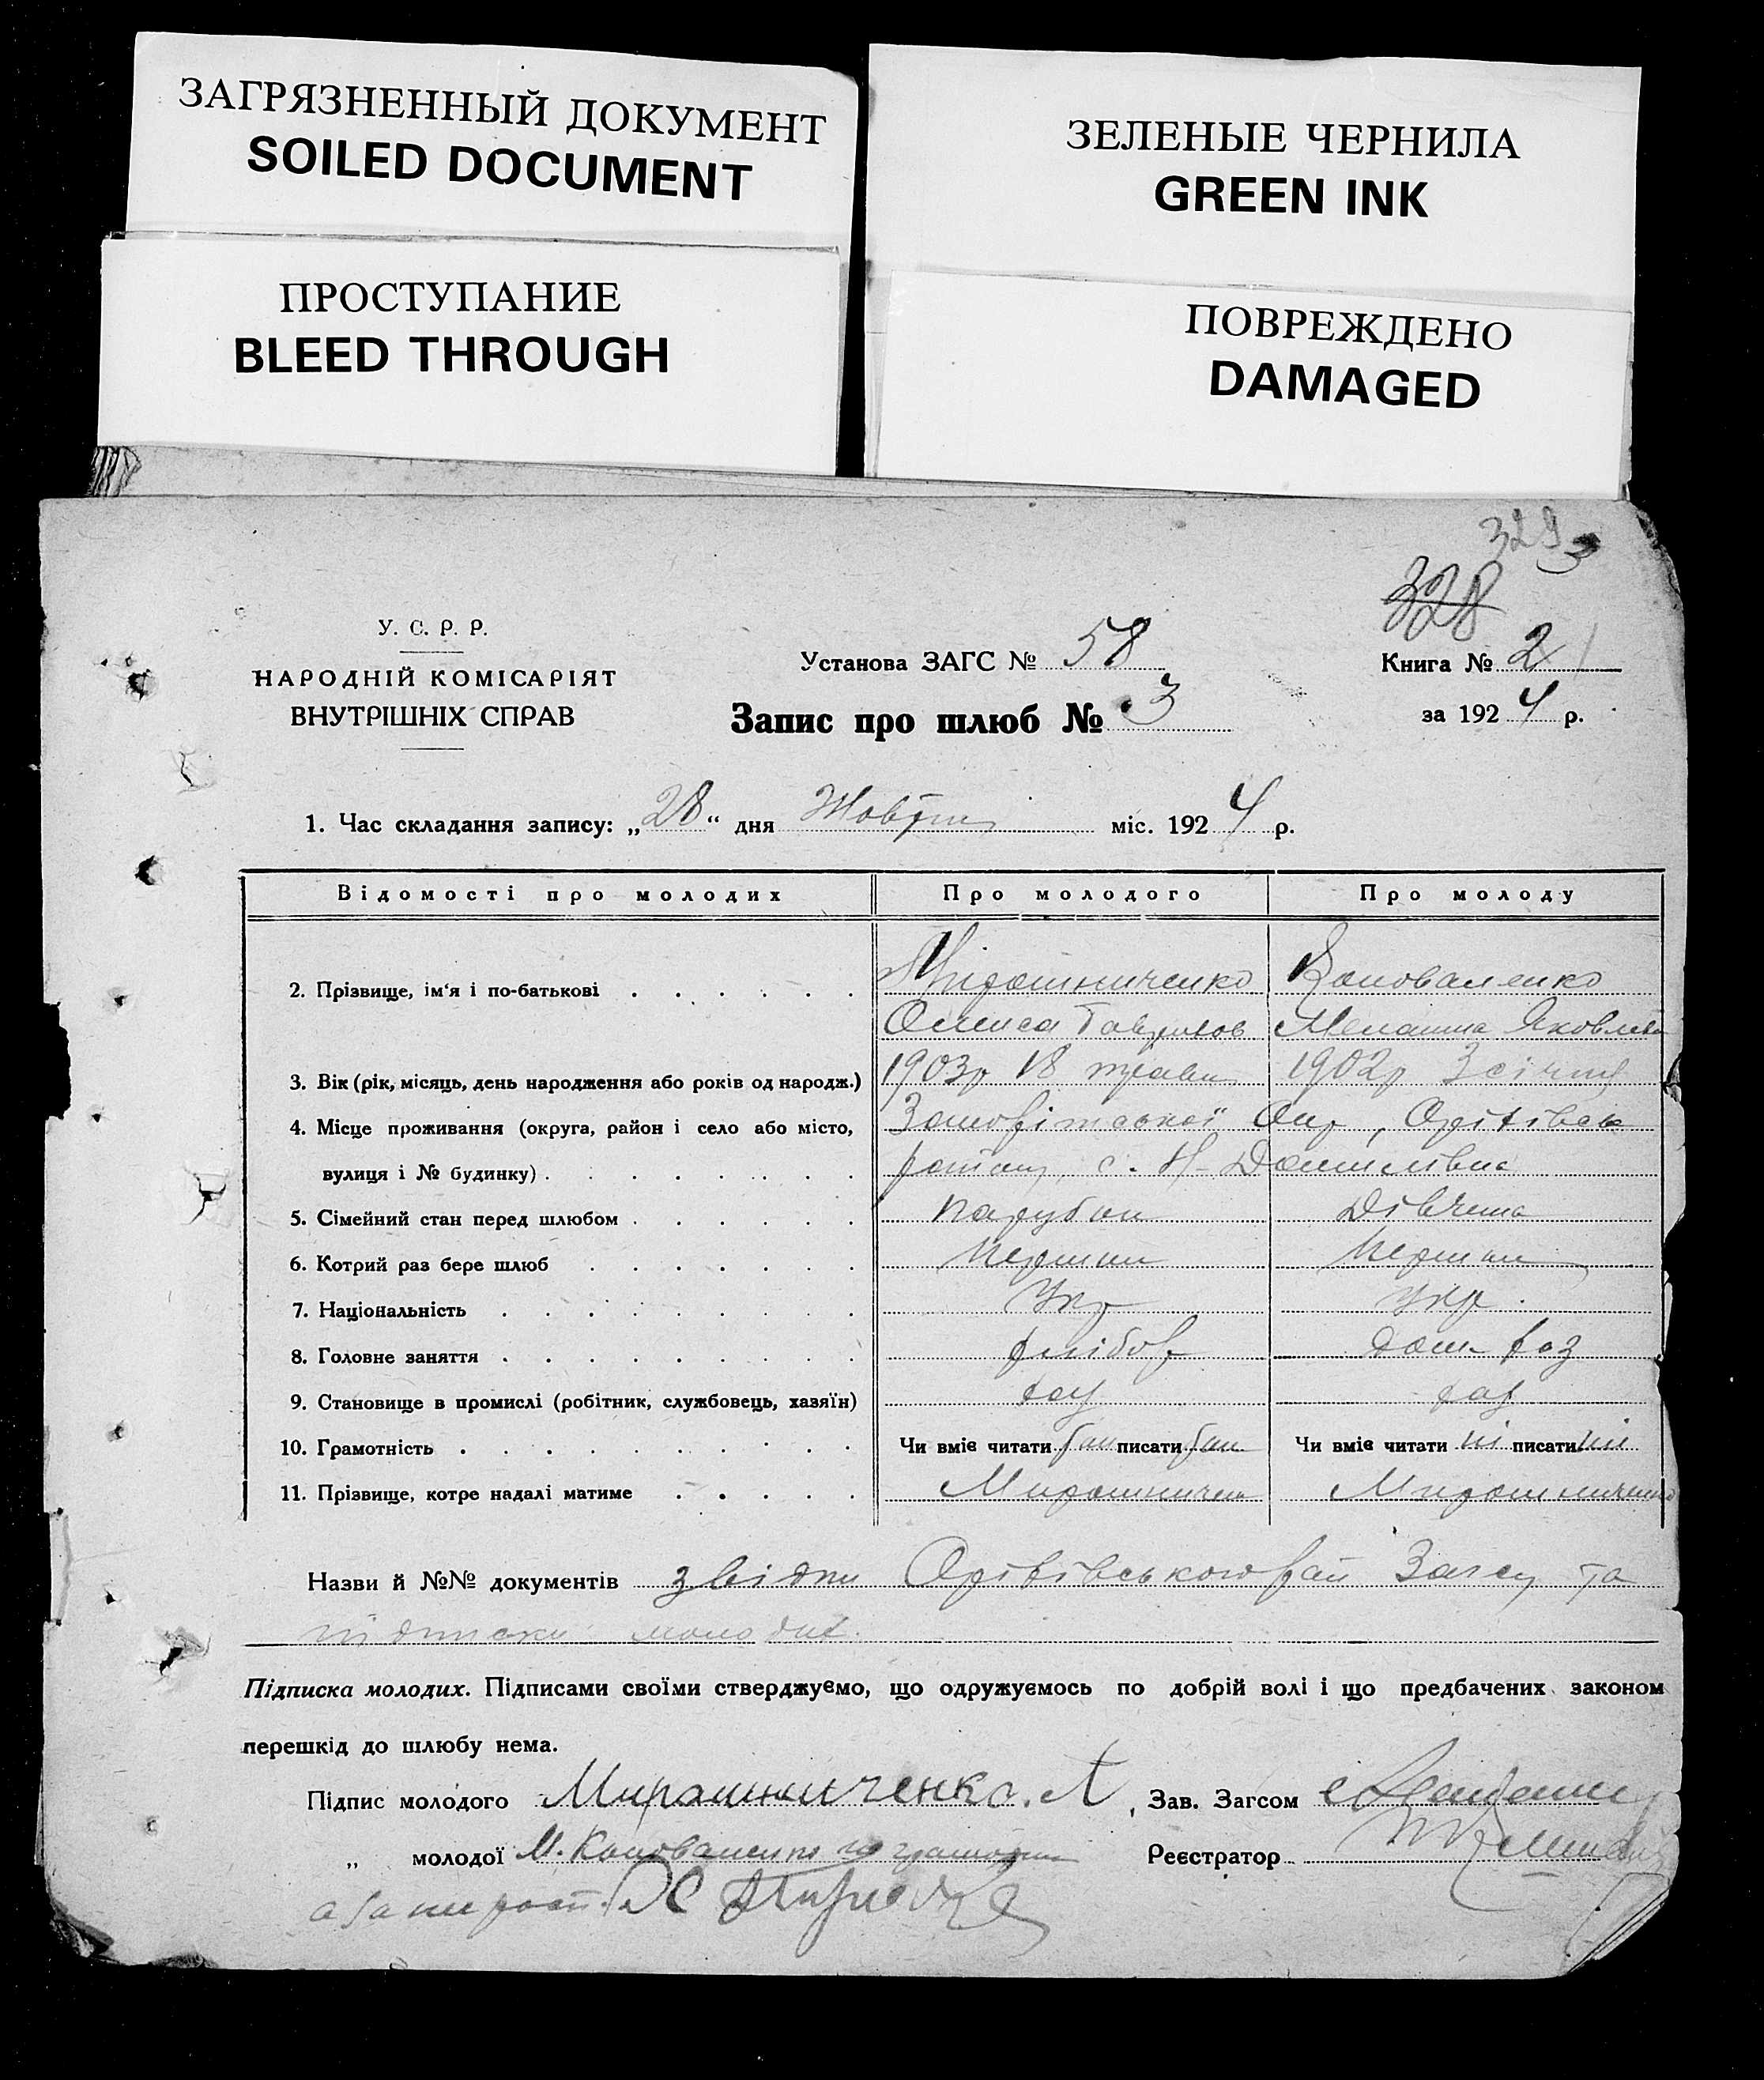 ЗАГРЯЗНЕННЫЙ ДОКУМЕНТ
SOILED DOCUMENT
ПРОСТУПАНИЕ
BLEED THROUGH
ЗЕЛЕНЫЕ ЧЕРНИЛА
GREEN INK
ПОВРЕЖДЕНО
DAMAGED
329
328
У. С. Р. Р.
НАРОДНІЙ КОМІСАРІЯТ
ВНУТРІШНІХ СПРАВ
Установа ЗАГС № 58
Запис про шлюб № 3
Книга № 2
за 1924 р.
1. Час складання запису: „28“ дня Жовтня міс. 1924 р.
Відомості про молодих Про молодого Про молоду
2. Прізвище, ім'я і по-батькові Мірошниченко Коноваленко
Меланка Яковлев
3. Вік (рік, місяць, день народження або років од народж.) 1903р 18 травн 1902р 3 січня
4. Місце проживання (округа, район і село або місто, Окр,
вулиця і № будинку) району с. Н-Данилівка
5. Сімейний стан перед шлюбом парубок дівчина
6. Котрий раз бере шлюб перший перший
7. Національність Укр Укр.
8. Головне заняття хлібор дом. хоз
9. Становище в промислі (робітник, службовець, хазяїн) хаз хаз
10. Грамотність Чи вміє читати писати Чи вміє читати ні писати ні
11. Прізвище, котре надалі матиме Мирошничен Мирошниченко
Назви й №№ документів звідки рай Загсу та
підписки молодих.
Підписка молодих. Підписами своїми стверджуємо, що одружуємось по добрій волі і що предбачених законом
перешкід до шлюбу нема.
Підпис молодого Мирошниченко. А, Зав. Загсом
„ молодої М. Коноваленко Реєстратор